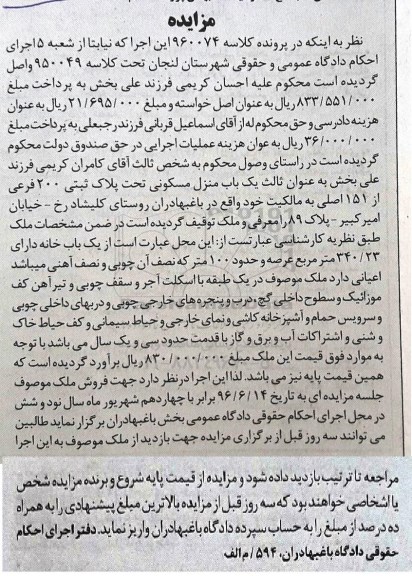 مزایده
نظر به اینکه در پرونده کلاسه ۹۶۰۰۷۴ این اجرا که نیابتا از شعبه ۵ اجرای
احکام دادگاه عمومی و حقوقی شهرستان لنجان تحت کلاسه ۹۵۰۰۴۹ واصل
گردیده است محکوم علیه احسان کریمی فرزند علی بخش به پرداخت مبلغ
۸۳۳/۵۵۱/۰۰۰ ریال به عنوان اصل خواسته و مبلغ ۲۱/۶۹۵/۰۰۰ ریال به عنوان
هزینه دادرسی و حق محکوم له از آقای اسماعیل قربانی فرزند رجبعلی به پرداخت مبلغ
۳۶/۰۰۰/۰۰۰ ریال به عوان هزینه عملیات اجرایی در حق صندوق دولت محکوم
گردیده است در راستای وصول محکوم به شخص ثالث آقای کامران کریمی فرزند
علی بخش به عنوان ثالث یک باب منزل مسکونی تحت پلاک ثبتی ۲۰۰ فرعی
از ۱۵۱ اصلی به مالکیت خود واقع در باغبهادران روستای کلیشاد رخ - خیابان
امیرکبیر - پلاک ۸۹ معرفی و ملک توقیف گردیده است در ضمن مشخصات ملک
طبق نظریه کارشناسی عبارتست از: این محل عبارت است از یک باب خانه دارای
۳۴۰/۲۳ متر مربع عرصه و حدود ۱۰۰ متر که نصف آن چوبی و نصف آهنی میباشد
اعیانی دارد ملک موصوف در یک طبقه با اسکلت آجر و سقف چوبی و تیر آهن کف
موزائیک و سطوح داخلی گچ، درب و پنجره های خارجی چوبی و دربهای داخلی چوبی
و سرویس حمام و آشپزخانه کاشی و نمای خارجی و حیاط سیمانی و کف حیاط خاک
و شنی و اشتراکات آب و برق و گاز با قدمت حدود سی و یک سال می باشد با توجه
به موارد فوق قیمت این ملک مبلغ ۸۳۰/۰۰۰/۰۰۰ ریال برآورد گردیده است که
همین قیمت پایه نیز می باشد. لذا این اجرا در نظر دارد جهت فروش ملک موصوف
جلسه مزایده ای به تاریخ ۹۶/۶/۱۴ برابر با چهاردهم شهریور ماه سال نود و شش
در محل اجرای احکام حقوقی دادگاه عمومی بخش باغبهادران برگزار نماید طالبین
می توانند سه روز قبل از برگزاری مزایده جهت بازدید از ملک موصوف به این اجرا
مراجعه تا ترتیب بازدید داده شود و مزایده از قیمت پایه شروع و برنده مزایده شخص
یا اشخاصی خواهند بود که سه روز قبل از مزایده بالاترین مبلغ پیشنهادی را به همراه
ده درصد از مبلغ را به حساب سپرده دادگاه باغبهادران واریز نماید. دفتر اجرای احکام
حقوقی دادگاه باغبهادران. ۵۹۴/م الف